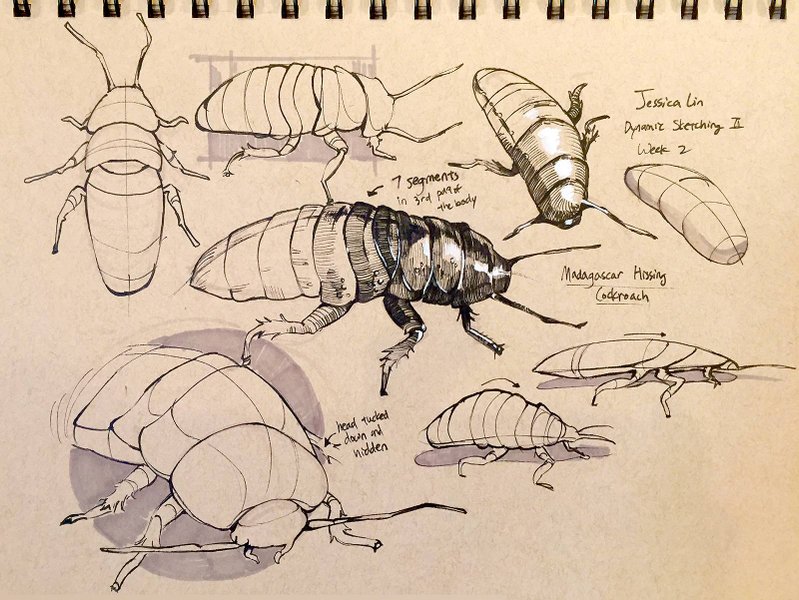 Jessica Lin
Dynamic Sketching II
Week 2
7 segments
in 3rd part of
the body
Madagascar Hissing
Cockroach
head tucked
down and
hidden